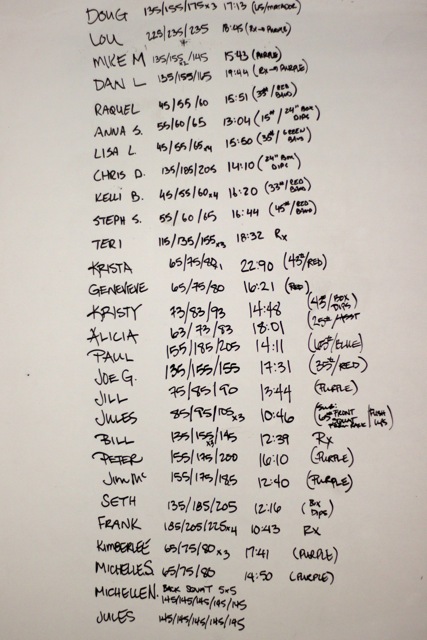 DOUG 135/155/175x3 17:13
LOU 225/235/235 18:45 (Rx→PURPLE)
MIKE M 135/155/145 15:43 (PURPLE)
DAN L 135/155/165 19:44 (Rx→PURPLE)
RAQUEL 45/55/60 15:51 (35#/RED BAND)
ANNA S. 55/60/65 13:04 (15#/24" BOX DIPS)
LISA L 45/55/65x4 15:50 (35#/GREEN BAND)
CHRIS D. 135/185/205 14:10 (24" BOX DIPS)
KELLI B. 45/55/60x4 16:20 (33#/RED BAND)
STEPH S. 55/60/65 16:44 (45#/RED BAND)
TERI 115/135/155x3 18:32 Rx
KRISTA 65/75/80x1 22:90 (45#/RED)
GENEVIEVE 65/75/80 16:21 (RED)
KRISTY 73/83/93 14:48 (45#/BOX DIPS)
ALICIA 63/73/83 18:01 (25#/ASST
PAUL 155/185/205 14:11 (65#/BLUE)
JOE G. 135/155/155 17:31 (35#/RED)
JILL 75/85/90 13:44 (PURPLE)
JULES 85/95/105x3 10:46 (65# FRONT SQUAT
BILL 135/155x3/145 12:39 Rx
PETER 155/175/200 16:10 (PURPLE)
Jim Mc 155/175/185 12:40 (PURPLE)
SETH 135/185/205 12:16 (BOX DIPS)
FRANK 185/205/225x4 10:43 Rx
KIMBERLEE 65/75/80x3 17:41 (PURPLE)
MICHELLE S. 65/75/80 14:50 (PURPLE)
MICHELLE N. BACK SQUAT 5x5
145/145/145/145/145
JULES 145/145/145/145/195